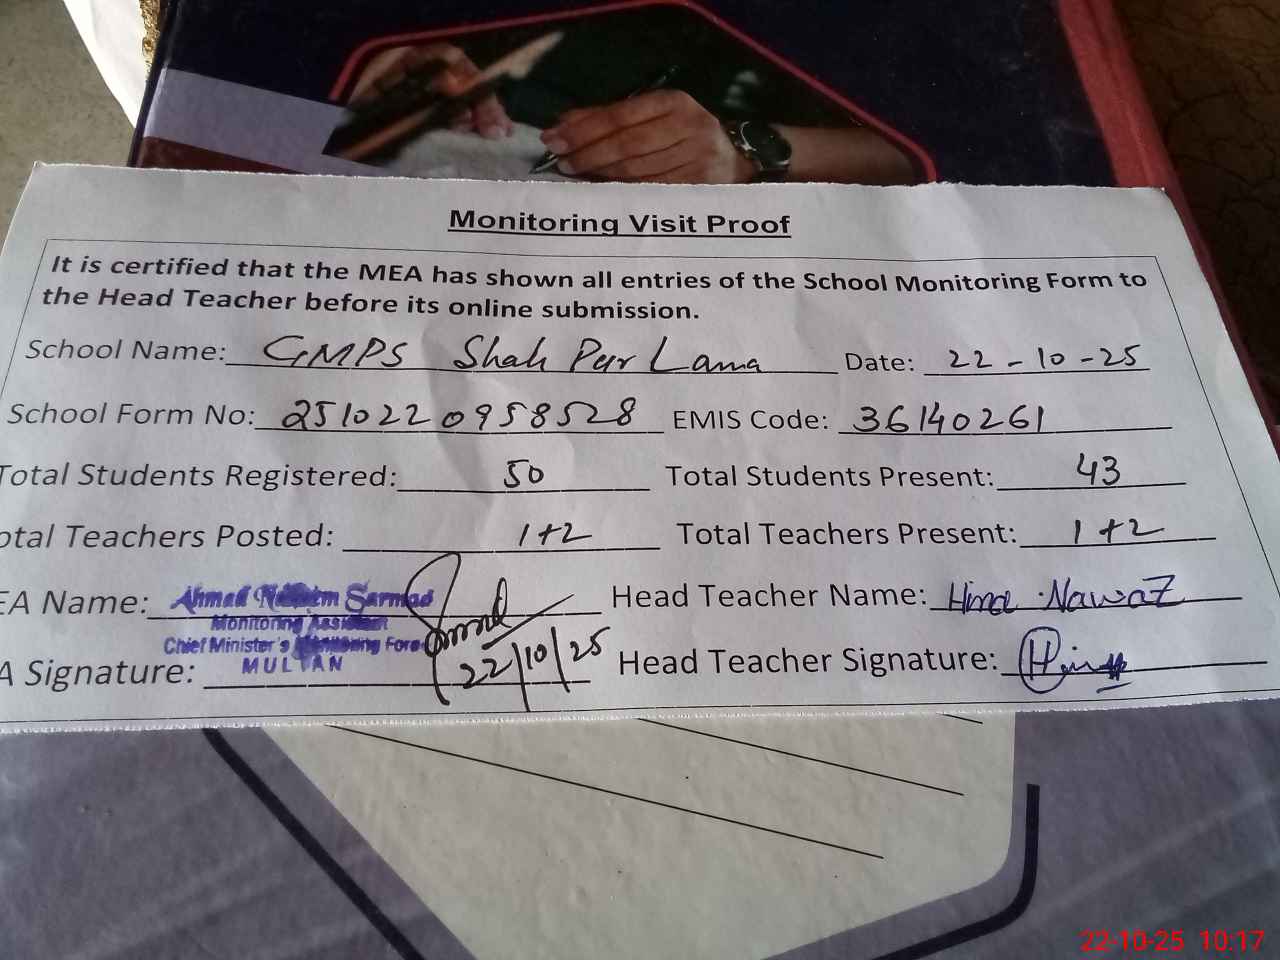 Monitoring Visit Proof
It is certified that the MEA has shown all entries of the School Monitoring Form to
the Head Teacher before its online submission.
School Name: GMPS Shah Pur Lama Date: 22-10-25
School Form No: 2510220958528 EMIS Code: 36140261
Total Students Registered: 50 Total Students Present: 43
otal Teachers Posted: 1+2 Total Teachers Present: 1+2
EA Name: Ahmad Sarmad Head Teacher Name: Hina Nawaz
Monitoring Assistant
Chief Minister's Monitoring Force
MULTAN
A Signature: 22/10/25 Head Teacher Signature:
22-10-25 10:17